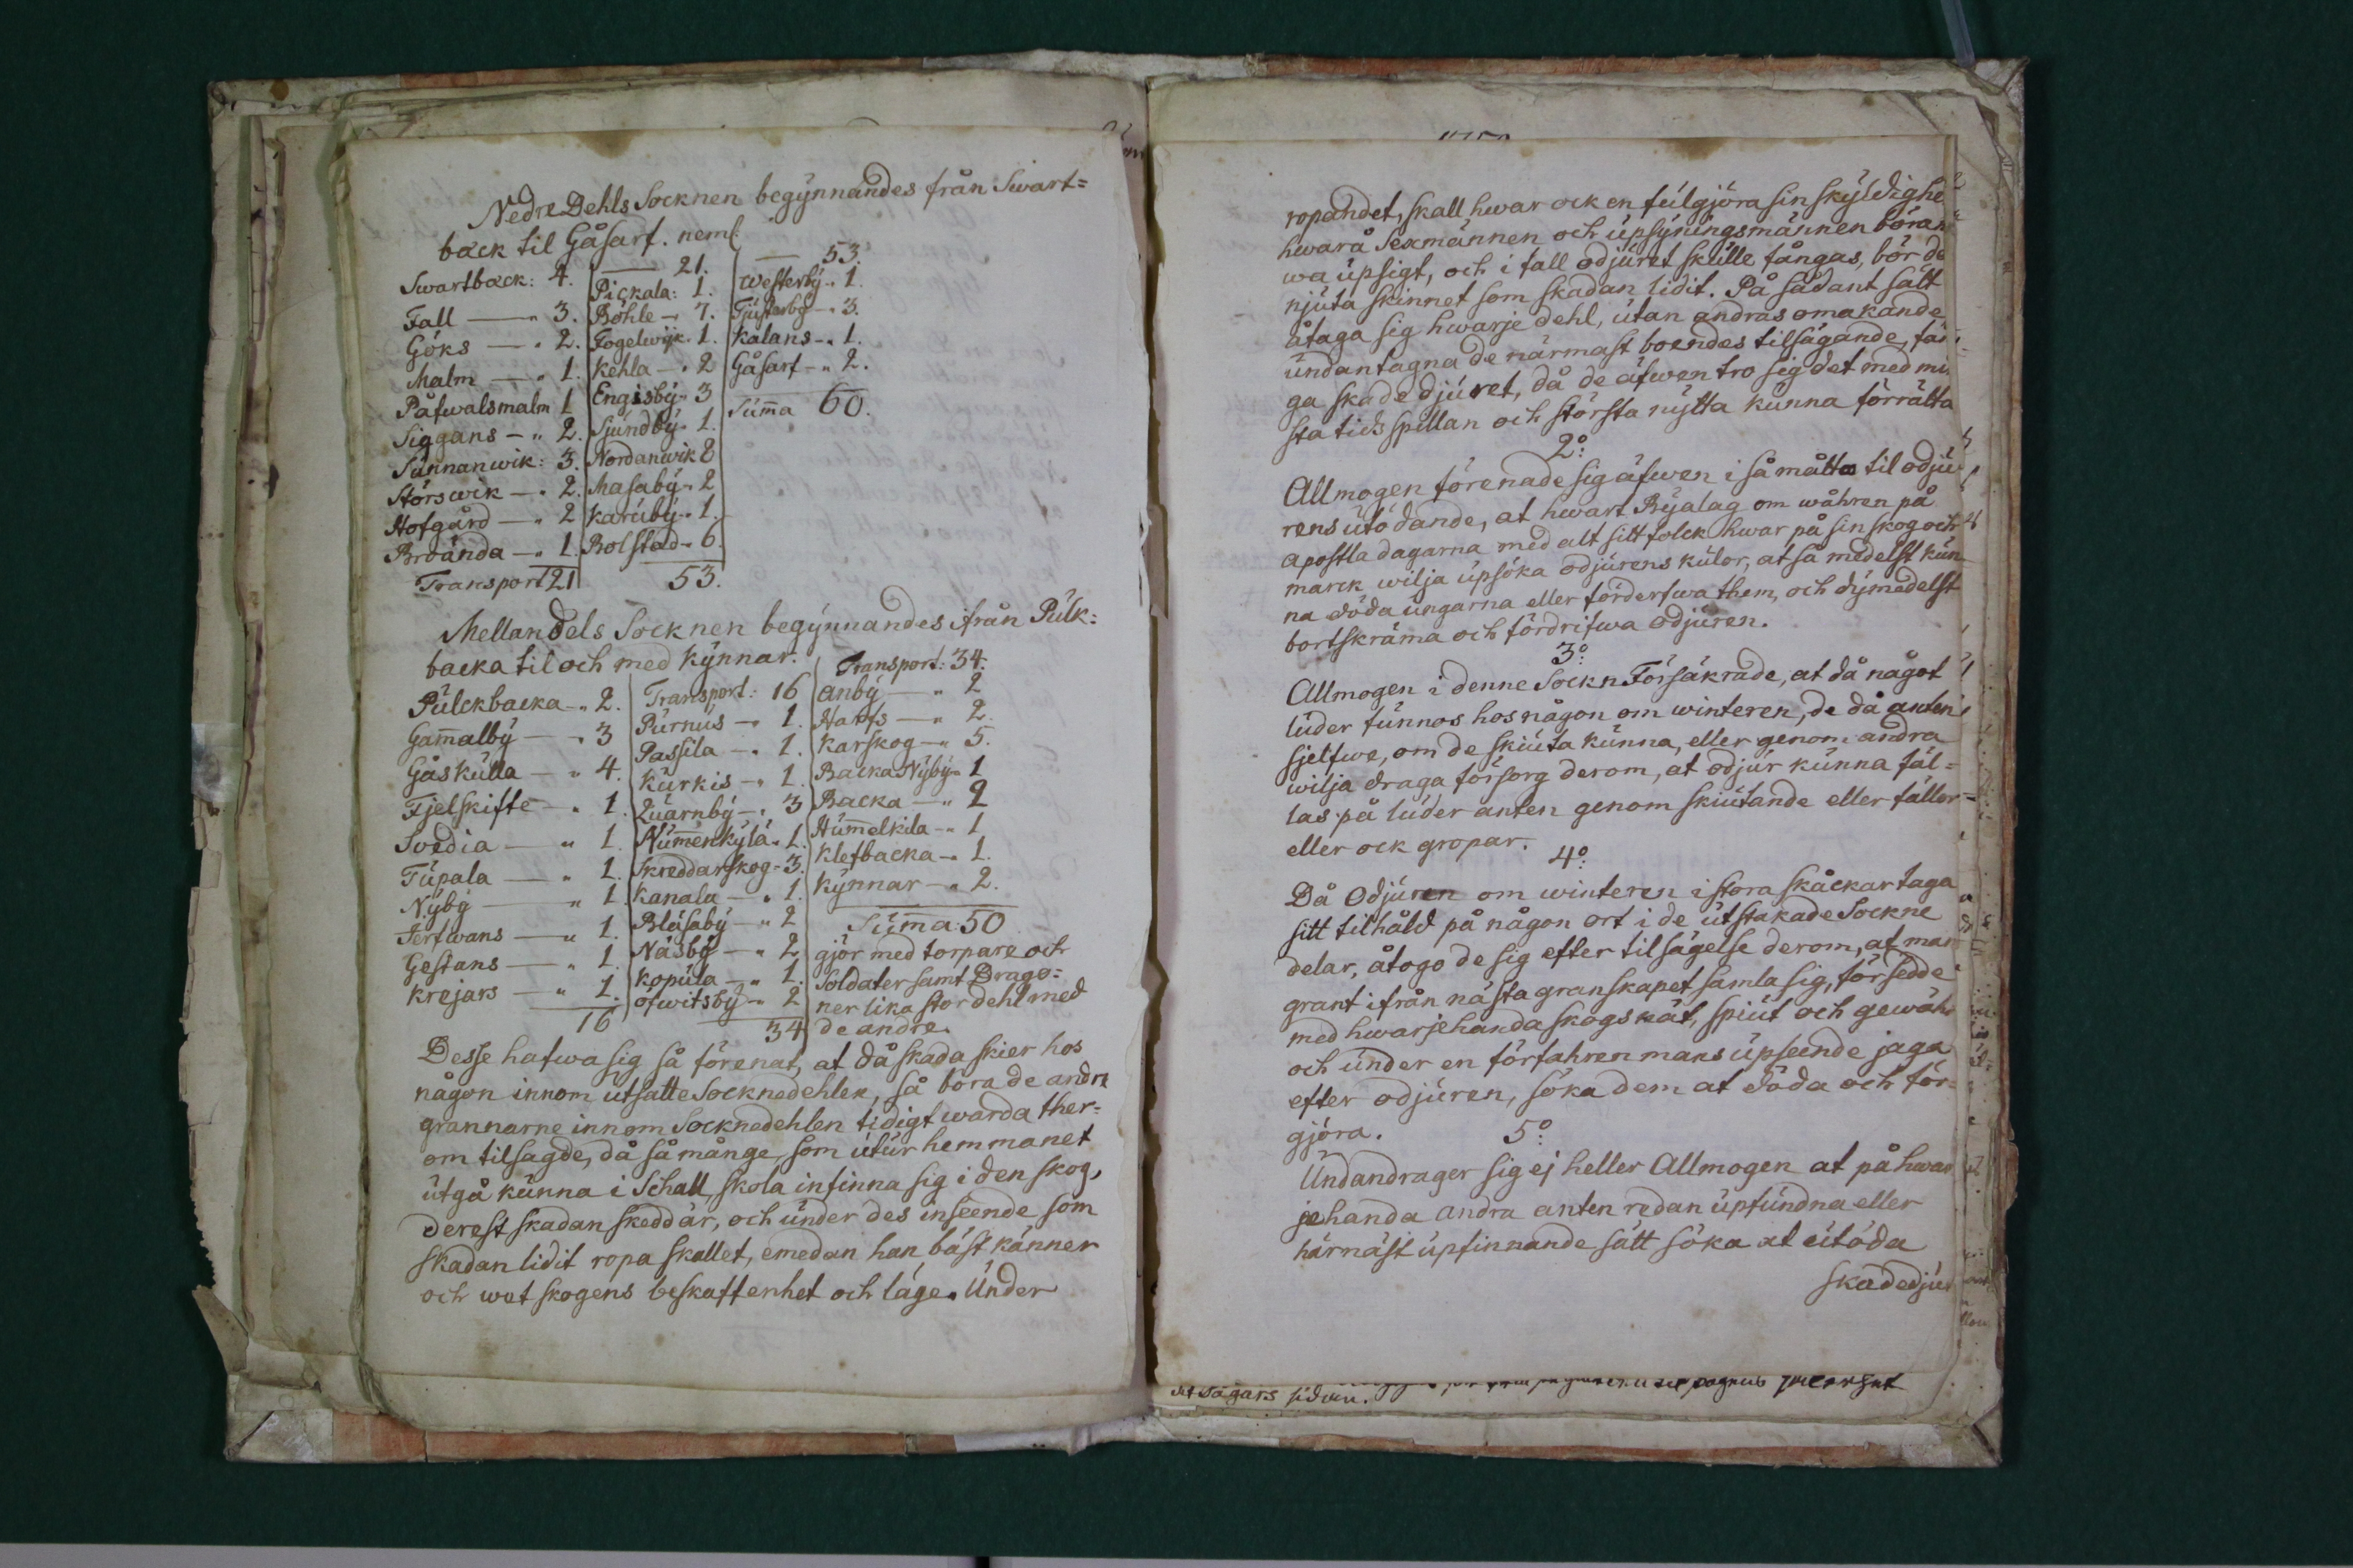 Nedre Dehls Socknen begynnandes från Swart=
back til Gåsarf. neml.
Swartback: 4.
Fall — 3.
Göks — 2.
Malm — 1.
Påfwalsmalm 1
Siggans — 2.
Sunnanwik: 3.
Störswik — 2.
Hofgård — 2
Broända — 1.
Transport 21
— 21.
Pickala: 1.
Böhle — 7.
Fogelwijk. 1.
Kehla — 2
Engisby 3
Sjundby 1.
Nordanwik 8
Masaby 2
Karuby 1.
Bolstad 6.
53.
— 53.
Westerby. 1.
Tjusterby — 3.
Kalans — 1.
Gåsarf — 2.
Suma 60.
Mellandels Socknen begynnandes ifrån Pulk=
backa til och med Kynnar.
Pulckbacka — 2.
Gamalby — 3
Gåskulla — 4.
Fjelskifte — 1.
Svedia — 1.
Tupala — 1.
Nyby — 1.
Jerfwans — 1.
Gestans — 1.
Krejars — 1.
16
Transport: 16
Purnus — 1.
Passila — 1.
Kurkis — 1.
Quarnby — 3
Numenkylä 1.
Skreddarskog 3.
Kanala — 1.
Blåsaby — 2
Näsby — 2
Kopula — 1.
Ofwitsby — 2
34
Transport: 34.
Anby — 2
Harfs — 2.
Karskog — 5.
Backa Nyby 1
Backa — 2
Humelkila — 1
Klefbacka — 1.
Kynnar — 2.
Suma: 50
gjör med torpare och
Soldater samt Drago=
ner lika stor dehl med
de andre.
Desse hafwa sig så förenat, at då skada skier hos
någon innom utsatte Socknedehlen, så böra de andra
grannarne innom Socknedehlen tidigt warda ther=
om tilsagde, då så månge, som utur hemmanet
utgå kunna i Schall, skola infinna sig i den skog,
derest skadan skedd är, och under des inseende som
skadan lidit ropa skallet, emedan han bäst känner
och wet skogens beskaffenhet och läge. Under
ropandet, skall hwar ock en fulgjöra sin skyldighe
hwarå Sexmännen och upsyningsmännen böra
wa upsigt, och i fall odjuret skulle fångas, bör de
njuta skinnet som skadan lidit. På sådant sätt
åtaga sig hwarje dehl, utan andras omakande
undantagna de närmast boendes tilsägande, fån
ga skadedjuret, då de äfwen tro sig det med min
sta tids spillan och största nytta kunna förrätta
2o:
Allmogen förenade sig äfwen i så måtto til odju
rens utödande, at hwart Byalag om wåhren på
apostla dagarna med alt sitt folck hwar på sin skog och
marck wilja upsöka odjurens kulor, at så medelst kun
na döda ungarna eller förderfwa them, och dymedelst
bortskräma och fördrifwa odjuren.
3o:
Allmogen i denne Sockn Försäkrade, at då något
luder funnos hos någon om winteren, de då anten
sjelfwe, om de skiuta kunna, eller genom andra
wilja draga försorg derom, at odjur kunna fäl=
las på luder anten genom skiutande eller fällor=
eller ock gropar.
4o:
Då Odjuren om winteren i stora skåckar taga
sitt tilhåld på någon ort i de utstakade Sockne
delar, åtogo de sig efter tilsägelse derom, at man
grant ifrån nästa granskapet samla sig, försedde
med hwarjehanda skogs nät, spiut och gewähr
och under en förfahren mans upseende jaga
efter odjuren, söka dem at döda och för=
gjöra.
5o:
Undandrager sig ej heller Allmogen at på hwar
jehanda andra anten redan upfundna eller
härnäst upfinnande sätt söka at utöda
skadedjur
sidan.